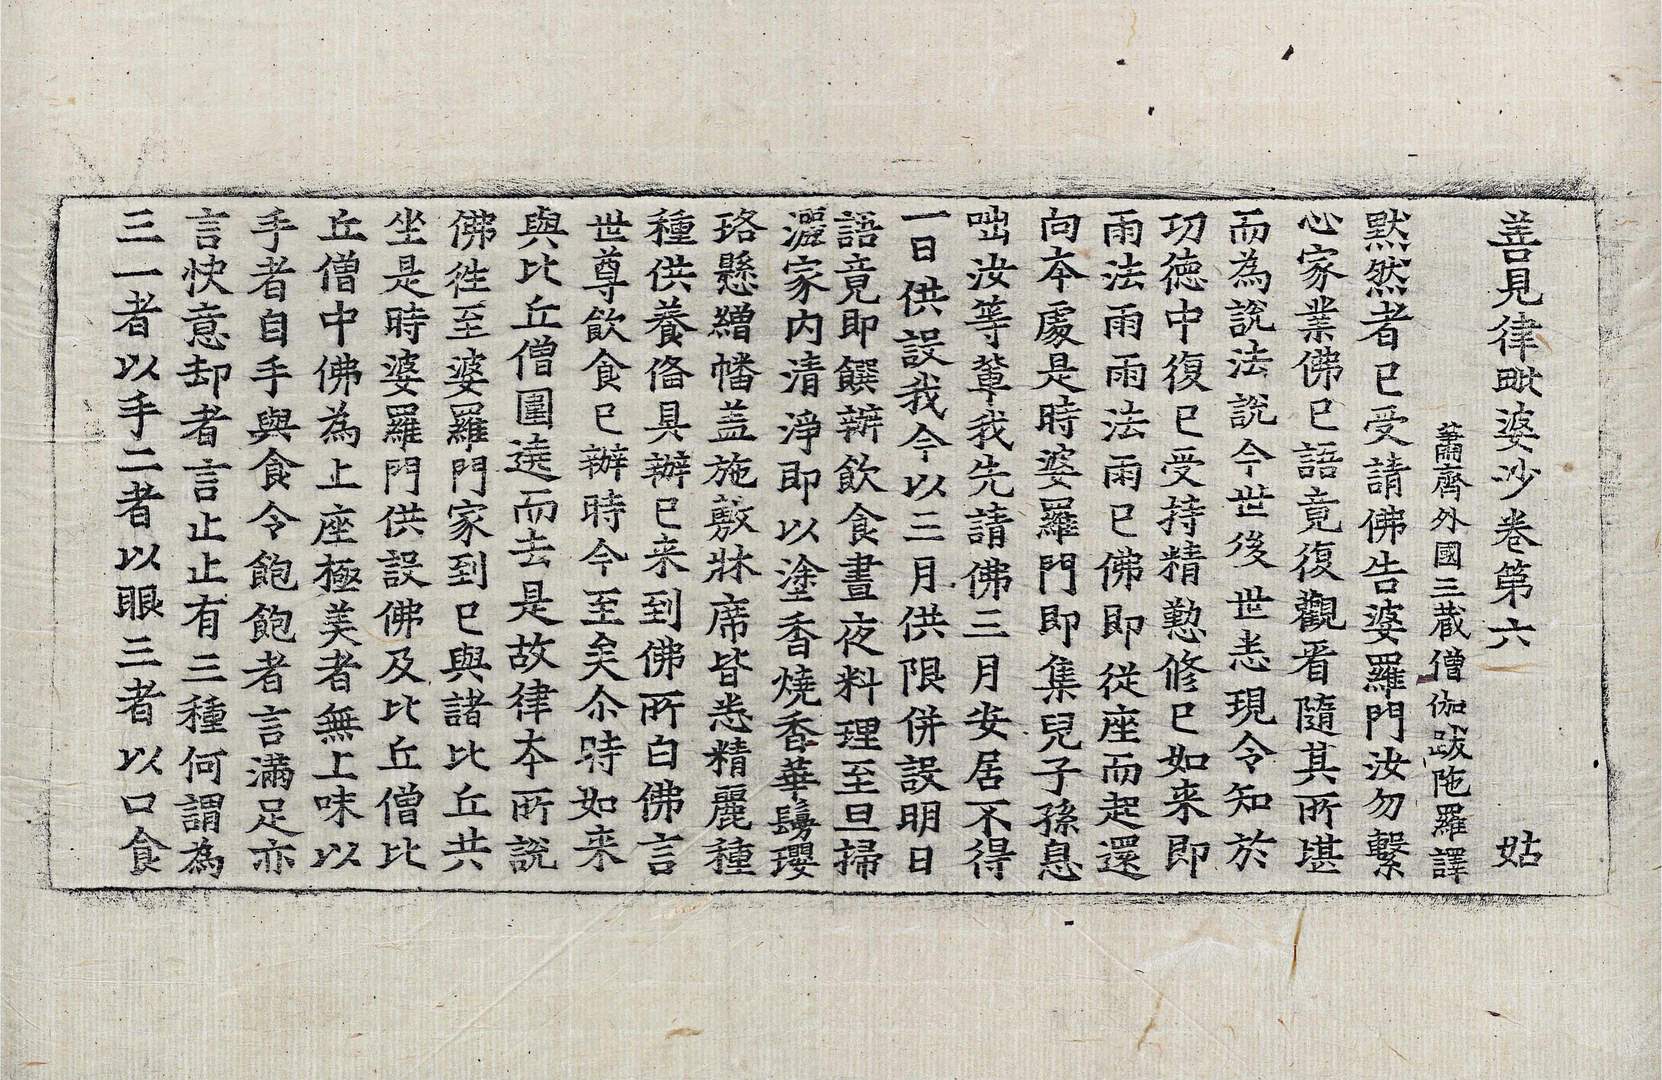 善見律毗婆沙卷第六　姑
蕭齊外國三藏僧伽跋陁羅譯
默然者已受請佛告婆羅門汝勿繫
心家業佛已語竟復觀看隨其所堪
而為說法說今世後世恚現令知於
功德中復已受持精懃修已如来即
雨法雨雨法雨已佛即從座而起還
向本處是時婆羅門即集兒子孫息
咄汝等輩我先請佛三月安居不得
一日供設我今以三月供限併設明日
語竟即饌辦飲食晝夜料理至旦掃
灑家內清淨即以塗香燒香華鬘瓔
珞懸繒幡盖施敷牀席皆悉精麗種
種供養俻具辦已来到佛所白佛言
世尊飲食已辦時今至矣尒時如来
與比丘僧圍遶而去是故律本所說
佛徃至婆羅門家到已與諸比丘共
坐是時婆羅門供設佛及比丘僧比
丘僧中佛為上座極美者無上味以
手者自手與食令飽飽者言滿足亦
言快意却者言止止有三種何謂為
三一者以手二者以眼三者以口食